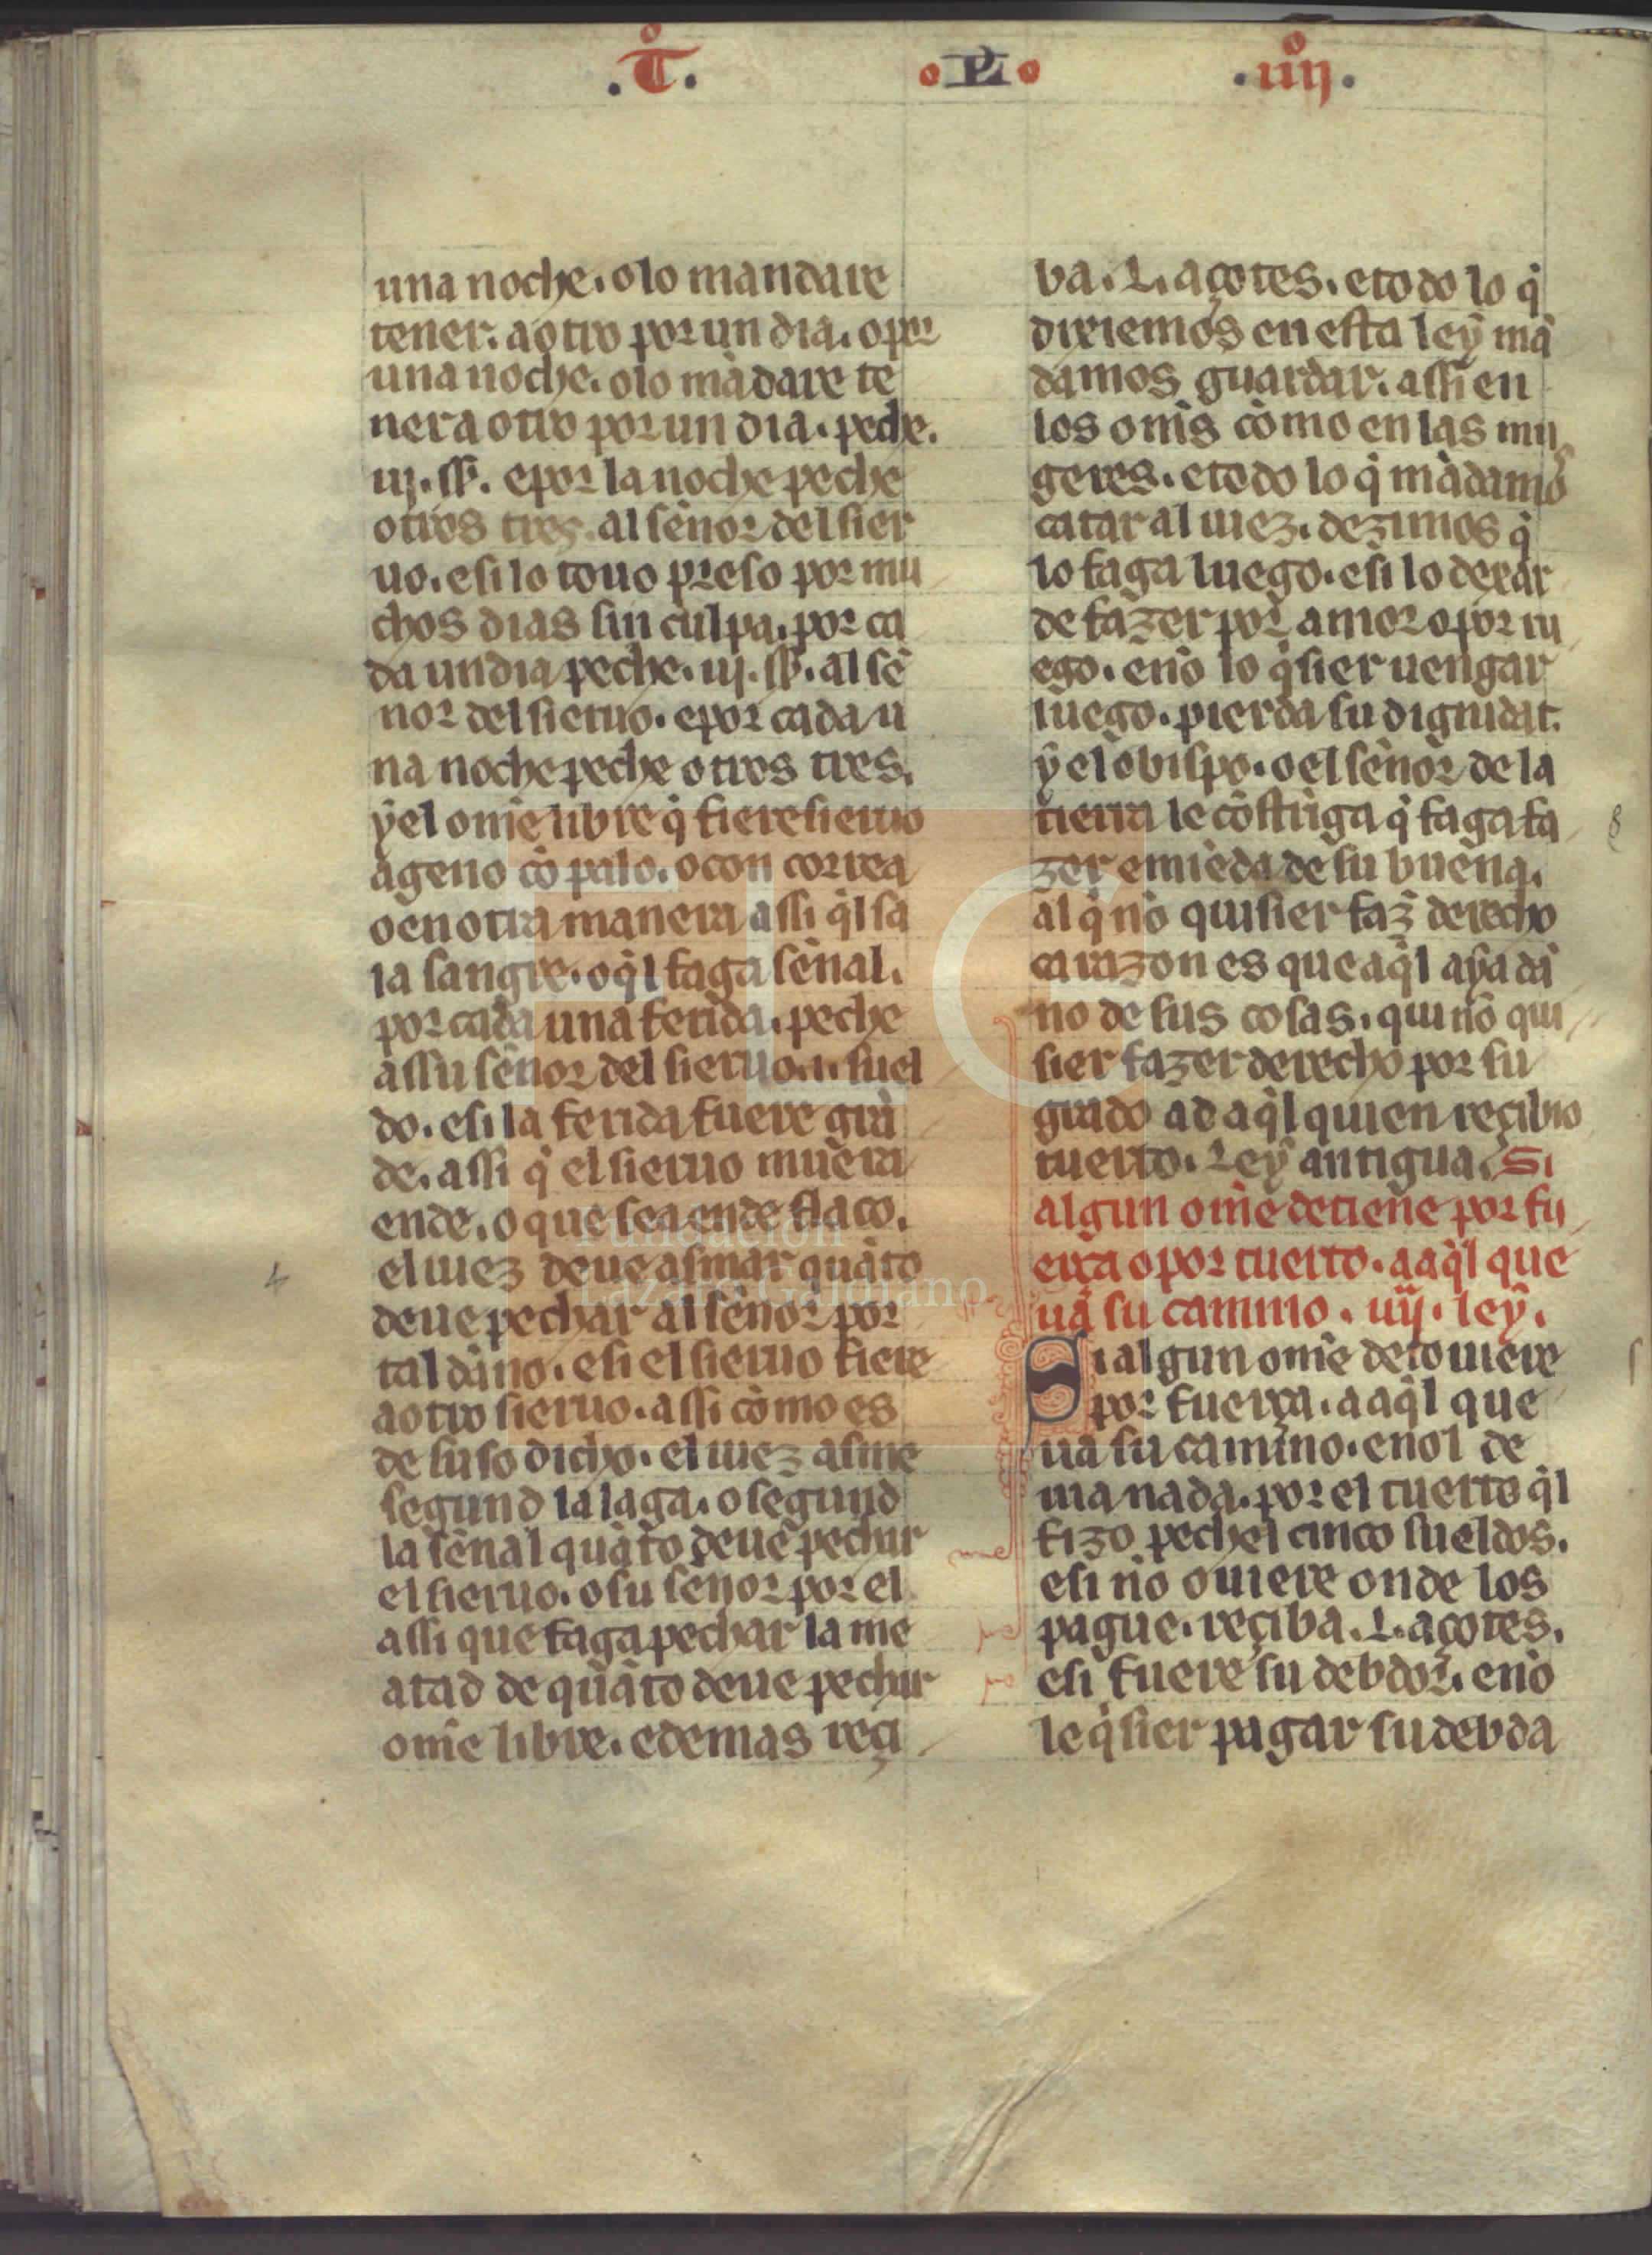 .Tͦ. PL .iiijͦ.
una noche. o lo mandare
tener. a otro por un dia. o por
una noche. o lo mādare te
ner a otro por un dia. peche.
iij. ss̄. e por la noche peche
otros tres. al sēnor del sier
uo. e si lo touo preso por mu
chos dias sin culpa. por ca
da un dia peche. iij. ss̄. al sē
nor del sieruo. e por cada u
na noche peche otros tres.
ẏ el om̄e libre q̄ fiere sieruo
ageno cō palo. o con correa
o en otra manera assi q̄l sa
la sangre. o q̄l faga sēnal.
por cada una ferida. peche
assu sēnor del sieruo .i. suel
do. e si la ferida fuere grā
de. assi q̄ el sieruo muera
ende. o que sea ende flaco.
el iuez deue asmar quāto
deue pechar al sēnor por
tal dāno. e si el sieruo fiere
a otro sieruo. assi cōmo es
de suso dicho. el iuez asme
segund la laga. o segund
la sēnal quāto deue pechar
el sieruo. o su senor por el
assi que faga pechar la me
atad de quāto deue pechar
om̄e libre. e demas reçi
ba. L. açotes. e todo lo q̄
dixiemos en esta leẏ mā
damos guardar. assi en
los om̄s cōmo en las mu
geres. e todo lo q̄ mādamos
catar al iuez. dezimos q̄
lo faga luego. e si lo dexar
de fazer por amor o por ru
ego. e nō lo q̄sier uengar
luego. pierda su dignidat.
ẏ el obispo. o el sēnor de la
tierra le cōstriga q̄ faga fa
zer emiēda de su buena.
al q̄ nō quisier faz̄ derecho
ca razon es que aq̄l aẏa dā
no de sus cosas. qui nō qui
sier fazer derecho por su
grado ad aq̄l quien reçibio
tuerto. Leẏ antigua. Si
algun om̄e detiene por fu
erça o por tuerto. a aq̄l que
uā su camino. iiij. leẏ.
Si algun om̄e detouiere
por fuerça. a aq̄l que
uā su camino. e nol de
ma nada. por el tuerto q̄l
fizo pechel cinco sueldos.
e si nō ouiere onde los
pague. reçiba. L. açotes.
e si fuere su debdor. e nō
le q̄sier pagar su debda
4
Fundación
Lázaro Galdiano